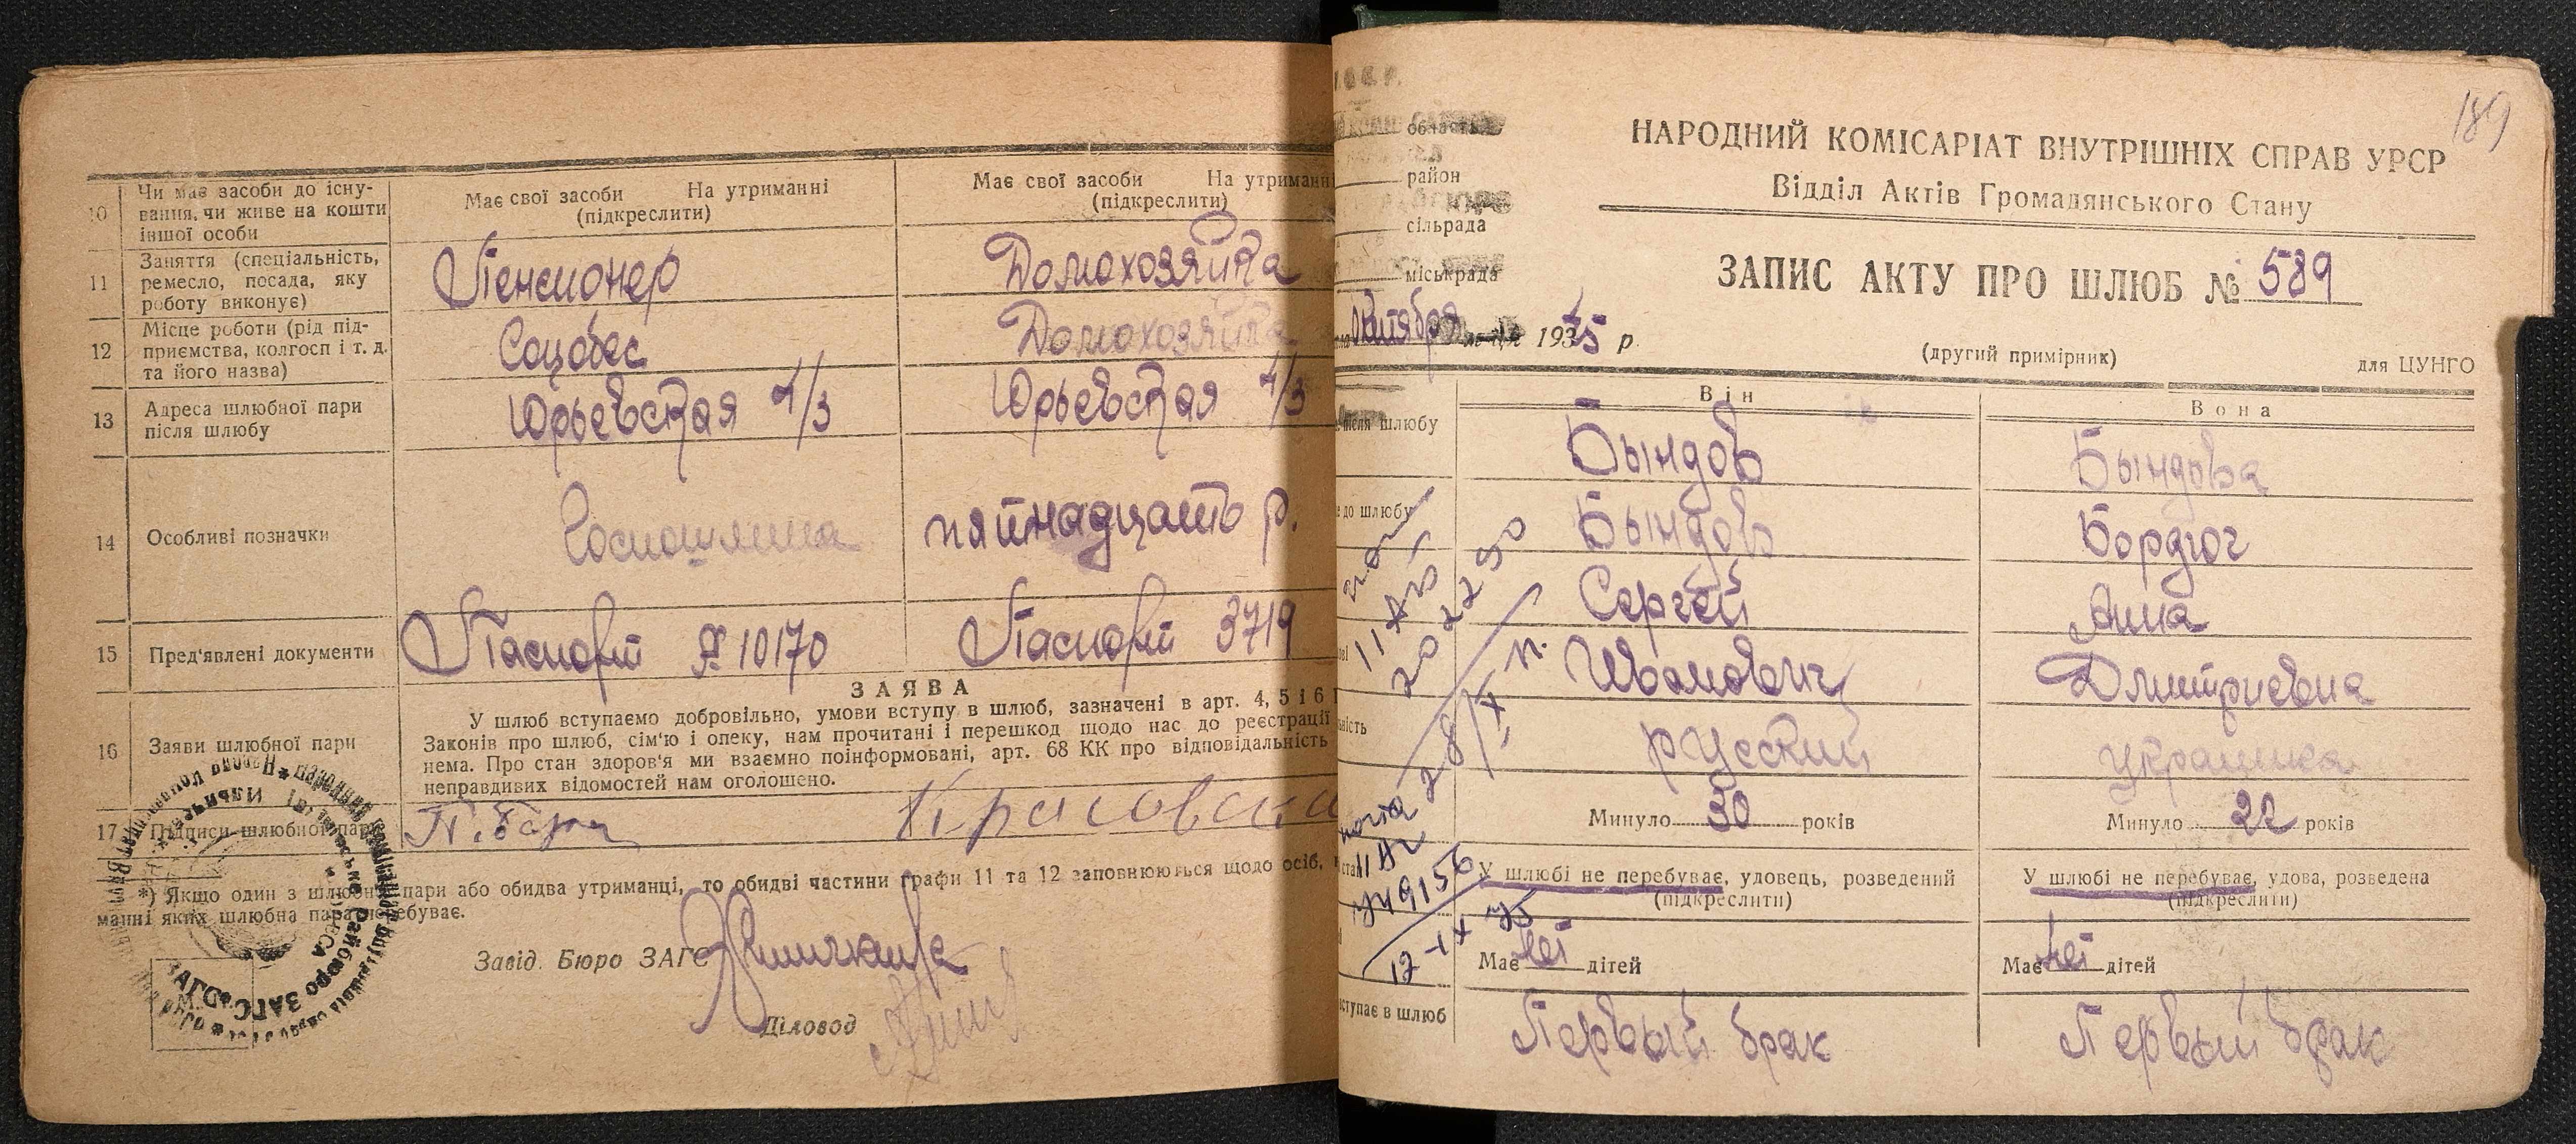 10 Чи має засоби до існу-
вання, чи живе на кошти
іншої особи
Має свої засоби На утриманні
(підкреслити)
Має свої засоби На утриманні
(підкреслити)
11 Заняття (спеціальність,
ремесло, посада, яку
роботу виконує)
Пенсионер
Домохозяйка
12 Місце роботи (рід під-
приємства, колгосп і т. д.
та його назва)
Соцобес
Домохозяйка
13 Адреса шлюбної пари
після шлюбу
Юрьевская 1/3
Юрьевская 1/3
14 Особливі позначки
Госпошлина
пятнадцать р.
15 Пред'явлені документи
Паспорт № 10170
Паспорт 3719
16 Заяви шлюбної пари
ЗАЯВА
У шлюб вступаємо добровільно, умови вступу в шлюб, зазначені в арт. 4, 5 і 6
Законів про шлюб, сім'ю і опеку, нам прочитані і перешкод щодо нас до реєстрації
нема. Про стан здоров'я ми взаємно поінформовані, арт. 68 КК про відповідальність
неправдивих відомостей нам оголошено.
17 Підписи шлюбної пари
*) Якщо один з шлюбної пари або обидва утриманці, то обидві частини графи 11 та 12 заповнюються щодо осіб,
манні яких шлюбна пара перебуває.
Завід. Бюро ЗАГС
Діловод
189
область
район
сільрада
міськрада
НАРОДНИЙ КОМІСАРІАТ ВНУТРІШНІХ СПРАВ УРСР
Відділ Актів Громадянського Стану
ЗАПИС АКТУ ПРО ШЛЮБ № 589
Октября 1935 р.
(другий примірник)
для ЦУНГО
Він
Вона
після шлюбу
Бындов
Бындова
до шлюбу
Бындов
Бордюг
Сергей
Анна
Иванович
Дмитриевна
русский
украинка
Минуло 30 років
Минуло 22 років
У шлюбі не перебуває, удовець, розведений
(підкреслити)
У шлюбі не перебуває, удова, розведена
(підкреслити)
Має неі дітей
Має неі дітей
вступає в шлюб
Первый брак
Первый брак